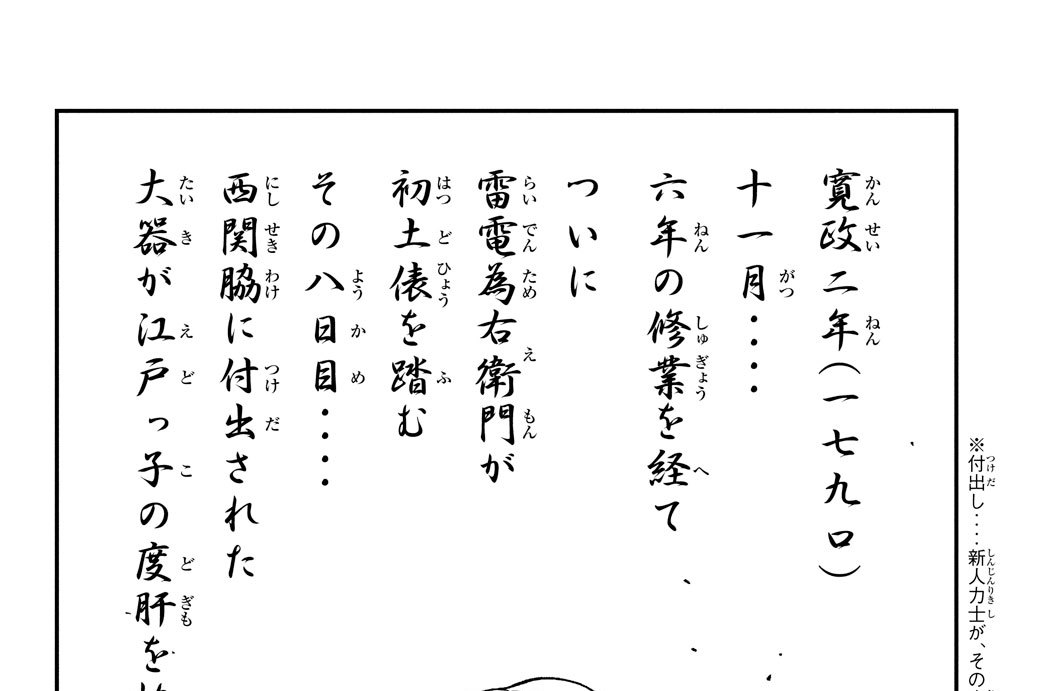 ※付出し‥‥新人力士が、その
寛政二年(一七九〇)
十一月‥‥
六年の修業を経て
ついに
雷電為右衛門が
初土俵を踏む
その八日目‥‥
西関脇に付出された
大器が江戸っ子の度肝を